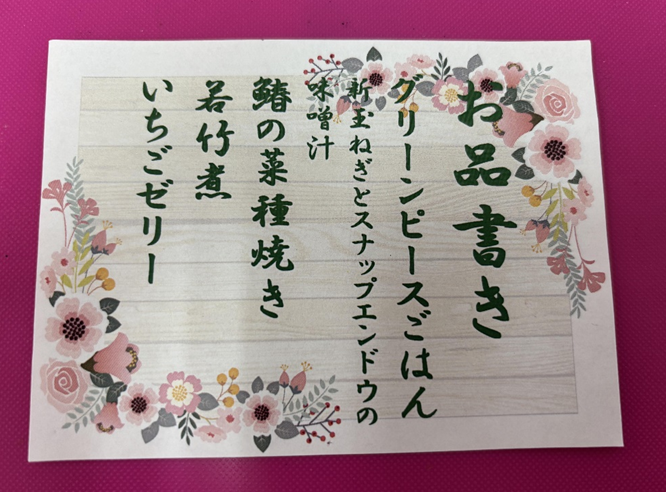 お品書き
グリーンピースごはん
新玉ねぎとスナップエンドウの
味噌汁
鰆の菜種焼き
若竹煮
いちごゼリー